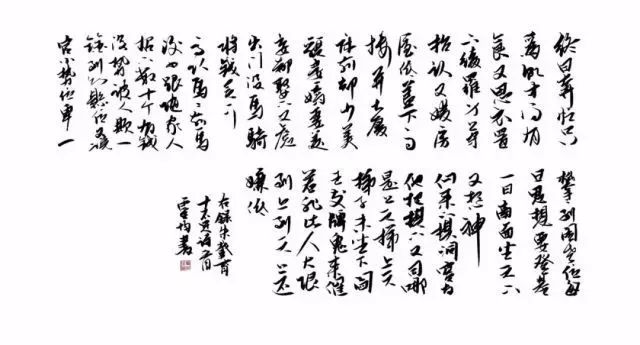 终日奔忙只
为饥才得有
食又思衣置
下绫罗身
抬头又嫌房
屋低盖下高
楼并大厦
床前却少美
貌妻娇妻美
妾都娶下又虑
出门没马骑
将钱买下
高头马马
后少跟随家人
招下数十个有钱
没势被人欺一
铨到知县位又说
官小势位卑一
攀到阁老位每
日思想要登基
一日南面坐天下
又想神
仙来下棋洞宾与
他把棋下又问哪
是上天梯上天
梯子未坐下阎
王发牌鬼来催
若非此人大限
到上到天上还
嫌低
右录朱载堉
十不足诗
书